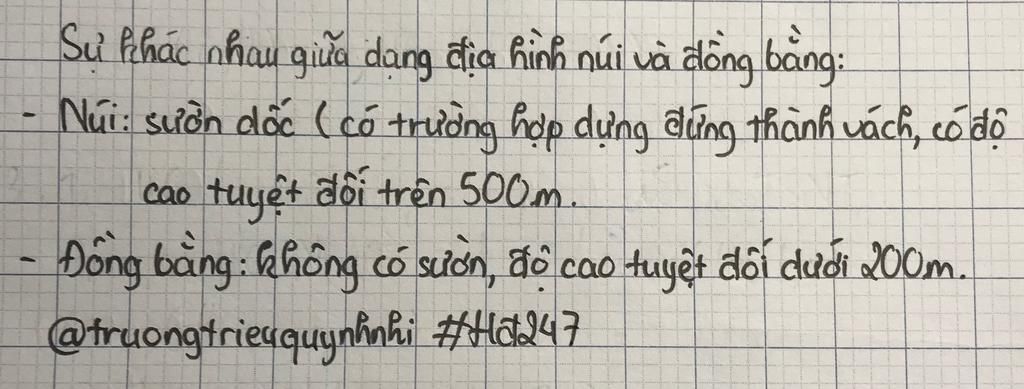 Sự khác nhau giữa dạng địa hình núi và đồng bằng:
- Núi: sườn dốc (có trường hợp dựng đứng thành vách, có độ
cao tuyệt đối trên 500m.
- Đồng bằng: không có sườn, độ cao tuyệt đối dưới 200m.
@truongtrieuquynhnhi #Hđ247